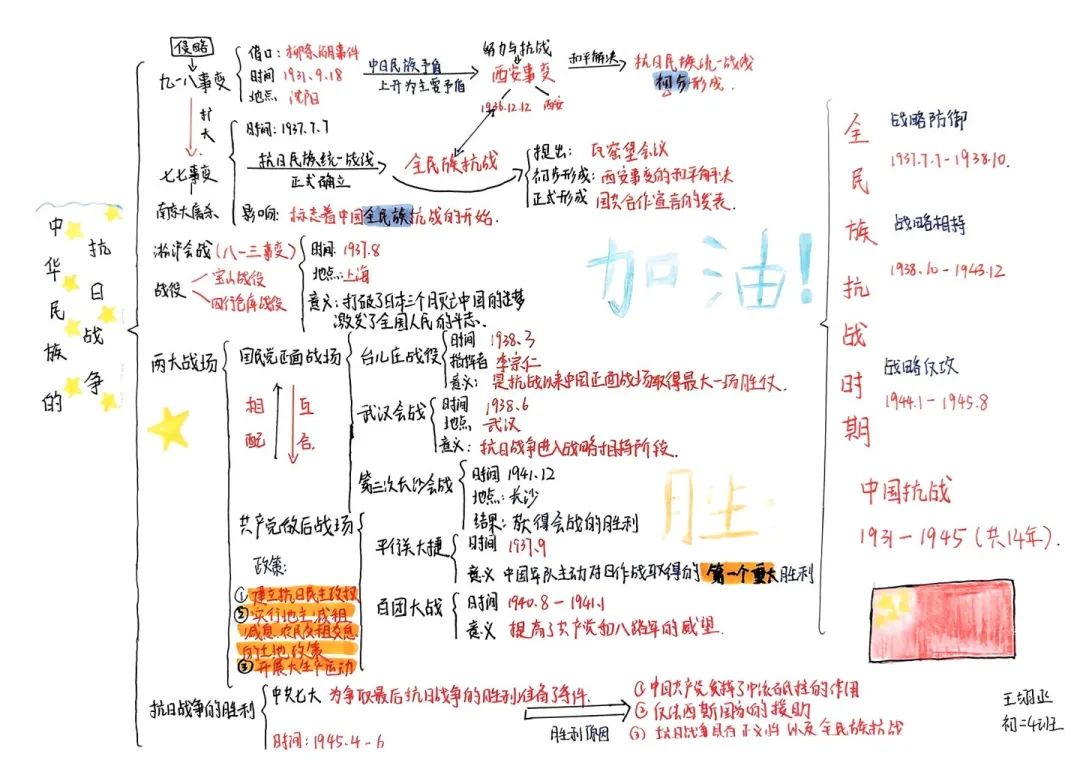 中华民族的
抗日战争
侵略
九一八事变
借口：柳条湖事件
时间 1931.9.18
地点 沈阳
中日民族矛盾
上升为主要矛盾
努力与抗战
西安事变
1936.12.12 西安
和平解决
抗日民族统一战线
初步形成.
扩大
七七事变
南京大屠杀
时间：1937.7.7
抗日民族统一战线
正式确立
全民族抗战
提出： 瓦窑堡会议
初步形成：西安事变的和平解决
正式形成 国共合作宣言的发表.
影响： 标志着中国全民族抗战的开始.
淞沪会战（八一三事变）
战役
宝山战役
四行仓库战役
时间：1937.8
地点：上海
意义：打破了日本三个月灭亡中国的迷梦
激发了全国人民的斗志.
加油！
两大战场
国民党正面战场
相互
配合
台儿庄战役
时间 1938.3
指挥者 李宗仁
意义：是抗战以来中国正面战场取得最大一场胜仗.
武汉会战
时间 1938.6
地点 武汉
意义：抗日战争进入战略相持阶段.
第三次长沙会战
时间 1941.12
地点：长沙
结果：获得会战的胜利
共产党敌后战场
政策：
①建立抗日民主政权
②实行地主减租
减息农民交租交息
的土地政策
③开展大生产运动
平型关大捷
时间 1937.9
意义 中国军队主动对日作战取得的第一个重大胜利
百团大战
时间 1940.8－1941.1
意义 提高了共产党和八路军的威望.
抗日战争的胜利
中共七大 为争取最后抗日战争的胜利准备了条件.
时间：1945.4－6
胜利原因
①中国共产党发挥了中流砥柱的作用
②反法西斯国家的援助
③抗日战争具有正义性以及全民族抗战
全民族抗战时期
战略防御
1937.7.7－1938.10.
战略相持
1938.10－1943.12
战略反攻
1944.1－1945.8
中国抗战
1931－1945（共14年）.
初二4班